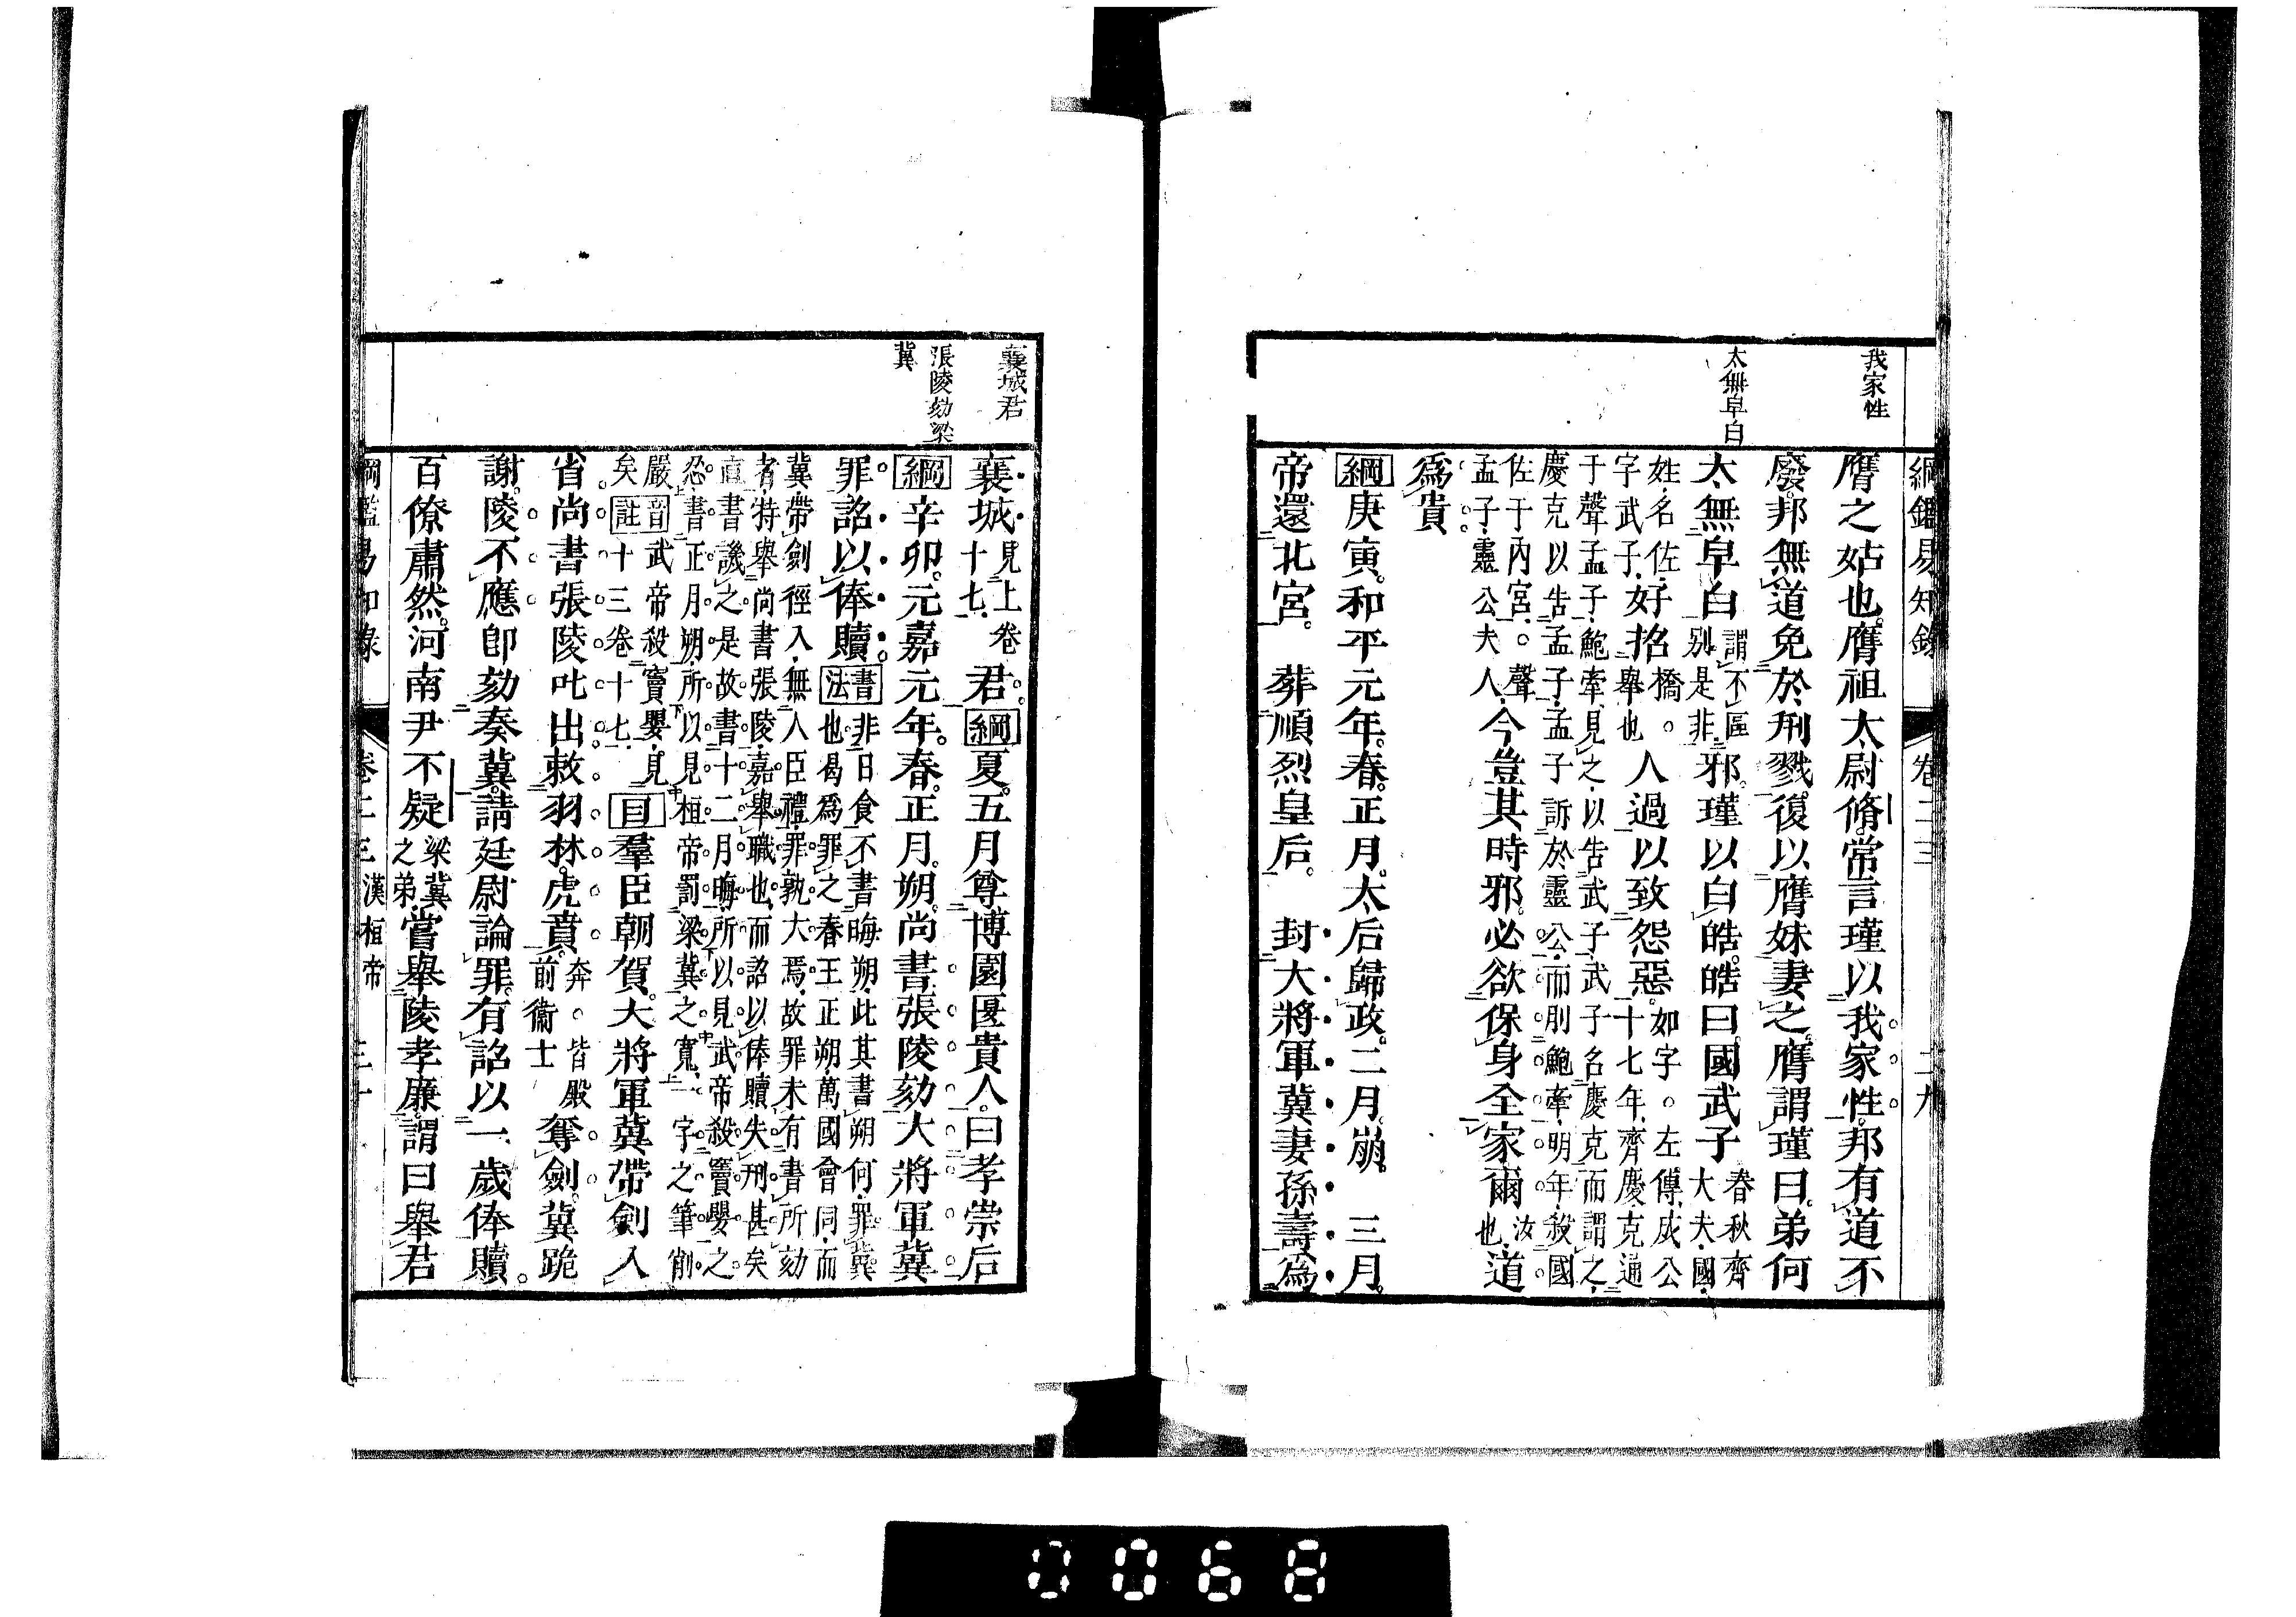 綱鑑易知錄 卷二三 二九
我家性
太無皁白
膺之姑也膺祖太尉脩常言瑾以我家性邦有道不
廢邦無道免於刑戮復以膺妹妻之膺謂瑾曰弟何
太無皁白謂不區
別是非邪瑾以白皓皓曰國武子春秋齊
大夫國
姓名佐好招橋。人過以致怨惡如字。左傳成公
字武子舉也十七年齊慶克通
于聲孟子鮑牽見之以告武子武子名慶克而謂之
慶克以告孟子孟子訴於靈公而刖鮑牽明年殺國
佐于內宮。聲
孟子靈公夫人今豈其時邪必欲保身全家爾汝
也道
爲貴
綱庚寅和平元年春正月太后歸政二月崩 三月
帝還北宮 葬順烈皇后 封大將軍冀妻孫壽爲
襄城君
張陵劾梁
冀
襄城見上卷
十七君綱夏五月尊博園匽貴人曰孝崇后
綱辛卯元嘉元年春正月朔尚書張陵劾大將軍冀
罪詔以俸贖書法非日食不書晦朔此其書朔何罪冀
也曷爲罪之春王正朔萬國會同而
冀帶劍徑入無人臣禮罪孰大焉故罪未有書所劾
者特舉尚書張陵嘉舉職也而詔以俸贖失刑甚矣
直書譏之是故書十二月晦所以見武帝殺竇嬰之
忍書正月朔所以見桓帝罰梁冀之寬一字之筆削
嚴音武帝殺竇嬰見
矣註十三卷十七目羣臣朝賀大將軍冀帶劍入
省尚書張陵叱出敕羽林虎賁奔。皆殿
前衞士奪劍冀跪
謝陵不應卽劾奏冀請廷尉論罪有詔以一歲俸贖
百僚肅然河南尹不疑梁冀
之弟嘗舉陵孝廉謂曰舉君
綱鑑易知錄 卷二三 漢桓帝 三十